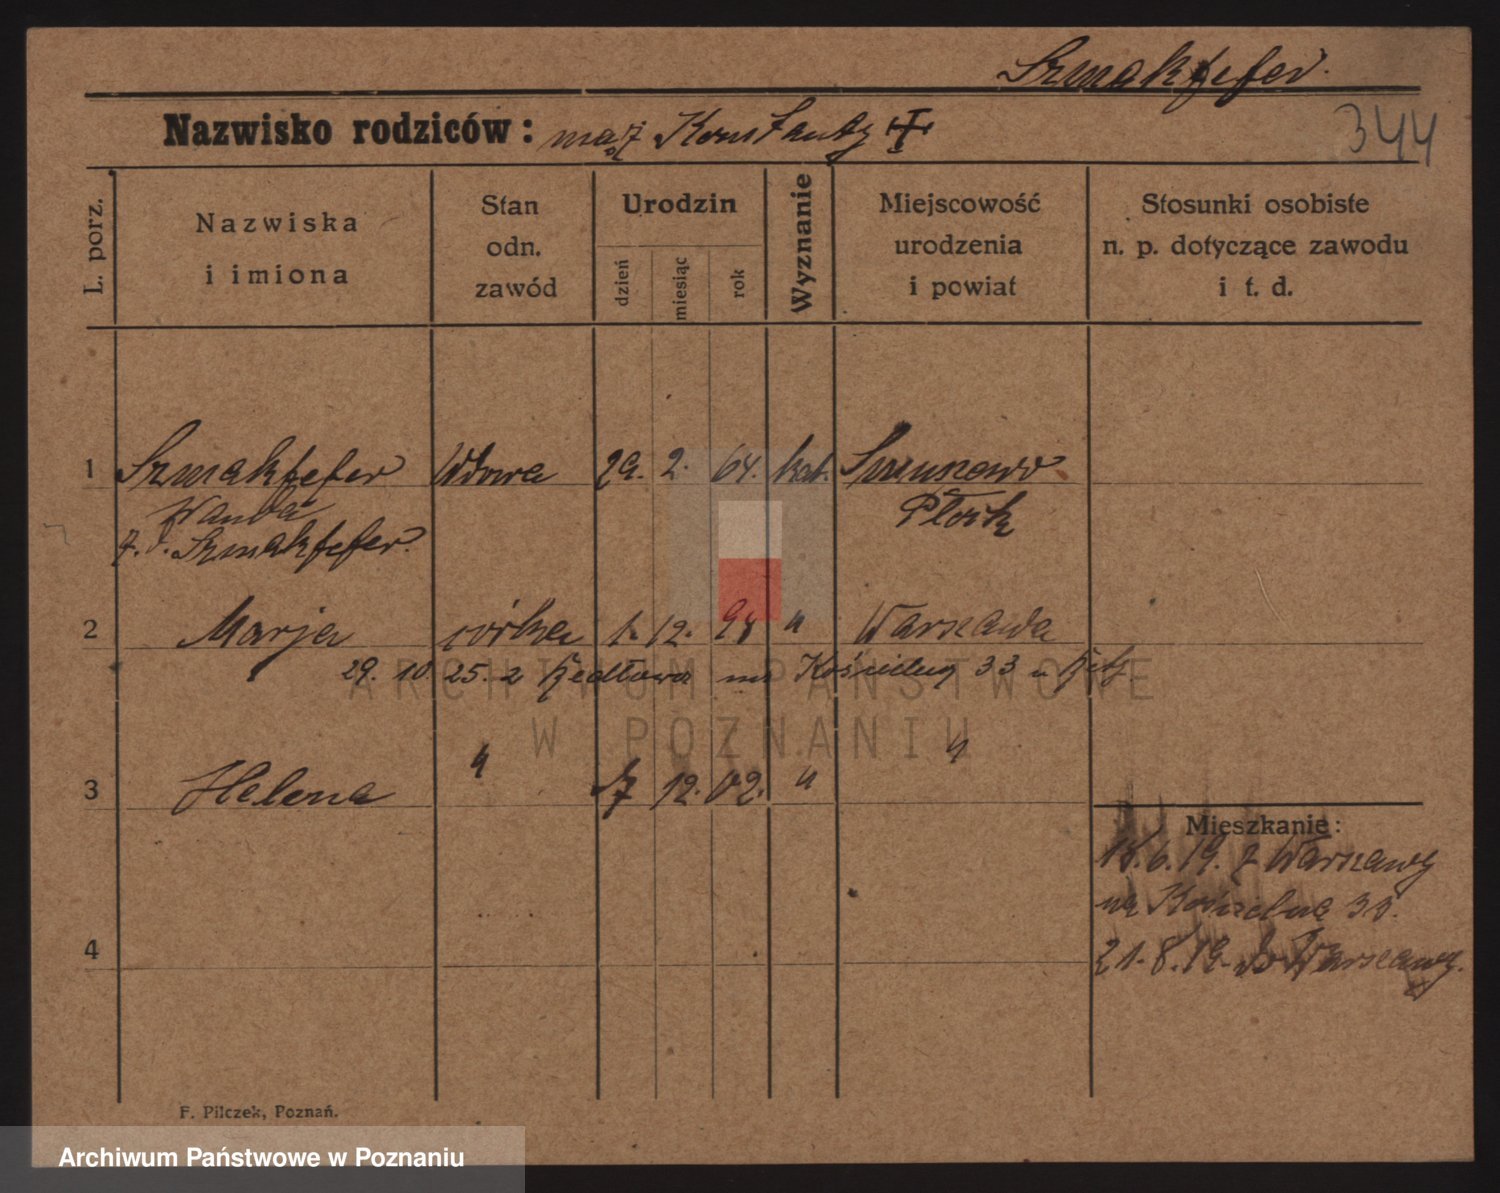 Szmakfefer.
Nazwisko rodziców: mąż Konstanty
344
L. porz.
Nazwiska i imiona
Stan odn. zawód
Urodzin
dzień
miesiąc
rok
Wyznanie
Miejscowość urodzenia i powiat
Stosunki osobiste n. p. dotyczące zawodu i t. d.
1 Szmakfefer Wdowa 29. 2. 64. kat.
Wanda Płock
z. d. Szmakfefer.
2 Marja córka 1. 12. 98 " Warszawa
29. 10. 25. z na 33
ARCHIWUM PAŃSTWOWE
W POZNANIU
3 Helena " 17 12. 02. " "
Mieszkanie:
18.6.19. z Warszawy
na Kościelną 33.
4
21.8.19. do Warszawy.
F. Pilczek, Poznań.
Archiwum Państwowe w Poznaniu